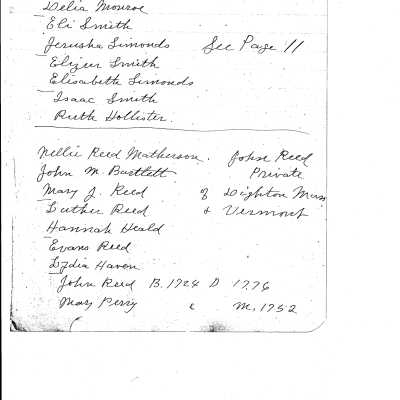 Delia Monroe
Eli Smith
Jerusha Simonds See Page 11
Elizer Smith
Elisabeth Simonds
Isaac Smith
Ruth Hollister.
Nellie Reed Matherson. John Reed
John M. Bartlett Private
Mary J. Reed of Dighton Mass
Luther Reed & Vermont
Hannah Heald
Evans Reed
Lydia Haven
John Reed B. 1724 D 1776
May Perry & M. 1752